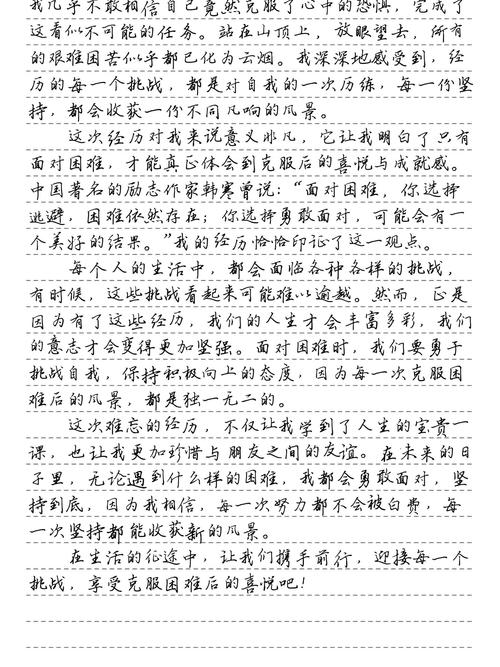 我几乎不敢相信自己竟然克服了心中的恐惧，完成了
这看似不可能的任务。站在山顶上，放眼望去，所有
的艰难困苦似乎都已化为云烟。我深深地感受到，经
历的每一个挑战，都是对自我的一次历练，每一份坚
持，都会收获一份不同凡响的风景。
这次经历对我来说意义非凡，它让我明白了只有
面对困难，才能真正体会到克服后的喜悦与成就感。
中国著名的励志作家韩寒曾说：“面对困难，你选择
逃避，困难依然存在；你选择勇敢面对，可能会有一
个美好的结果。”我的经历恰恰印证了这一观点。
每个人的生活中，都会面临各种各样的挑战，
有时候，这些挑战看起来可能难以逾越。然而，正是
因为有了这些经历，我们的人生才会丰富多彩，我们
的意志才会变得更加坚强。面对困难时，我们要勇于
挑战自我，保持积极向上的态度，因为每一次克服困
难后的风景，都是独一无二的。
这次难忘的经历，不仅让我学到了人生的宝贵一
课，也让我更加珍惜与朋友之间的友谊。在未来的日
子里，无论遇到什么样的困难，我都会勇敢面对，坚
持到底，因为我相信，每一次努力都不会被白费，每
一次坚持都能收获新的风景。
在生活的征途中，让我们携手前行，迎接每一个
挑战，享受克服困难后的喜悦吧！